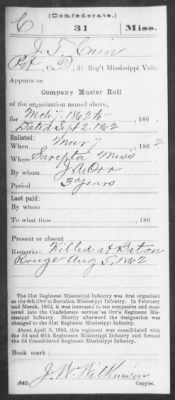 (Confederate.)
C 31 Miss.
J. T. Cain
Pvt, Co. D, 31 Reg't Mississippi Vols.
Appears on
Company Muster Roll
of the organization named above,
for Mch 7, 1862 to, 186
Dated Sept 2, 1862
Enlisted:
When Mar 7, 1862
Where Sarepta Miss
By whom J A Orr
Period 3 years
Last paid:
By whom
To what time, 186
Present or absent
Remarks: Killed At Baton
Rouge Aug 5, 1862
The 31st Regiment Mississippi Infantry was first organized
as the 6th (Orr's) Battalion Mississippi Infantry. In February
and March, 1862, it was increased to ten companies and mustered
into the Confederate service as Orr's Regiment Mississippi
Infantry. Shortly afterwards the designation was
changed to the 31st Regiment Mississippi Infantry.
About April 9, 1865, this regiment was consolidated with the
3d and 40th Regiments Mississippi Infantry and formed
the 3d Consolidated Regiment Mississippi Infantry.
Book mark:
J. W. Wilkinson
(642) Copyist.